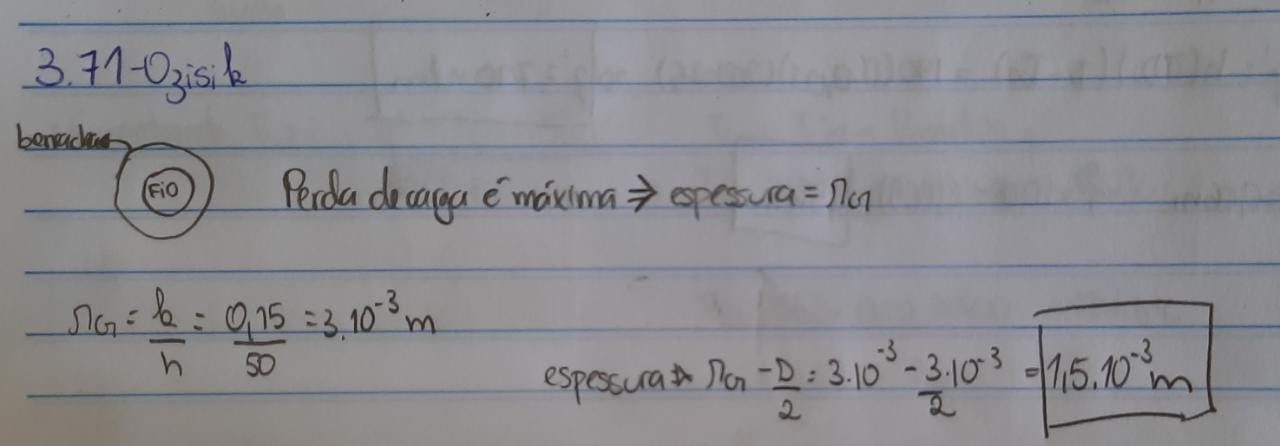 3.71-Ozisik
borracha
FiO
Perda de carga é máxima ⇒ espessura = rcr
rcr = k/h = 0,15/50 = 3.10⁻³ m
espessura → rcr - D/2 = 3.10⁻³ - 3.10⁻³/2 = 1,5.10⁻³ m